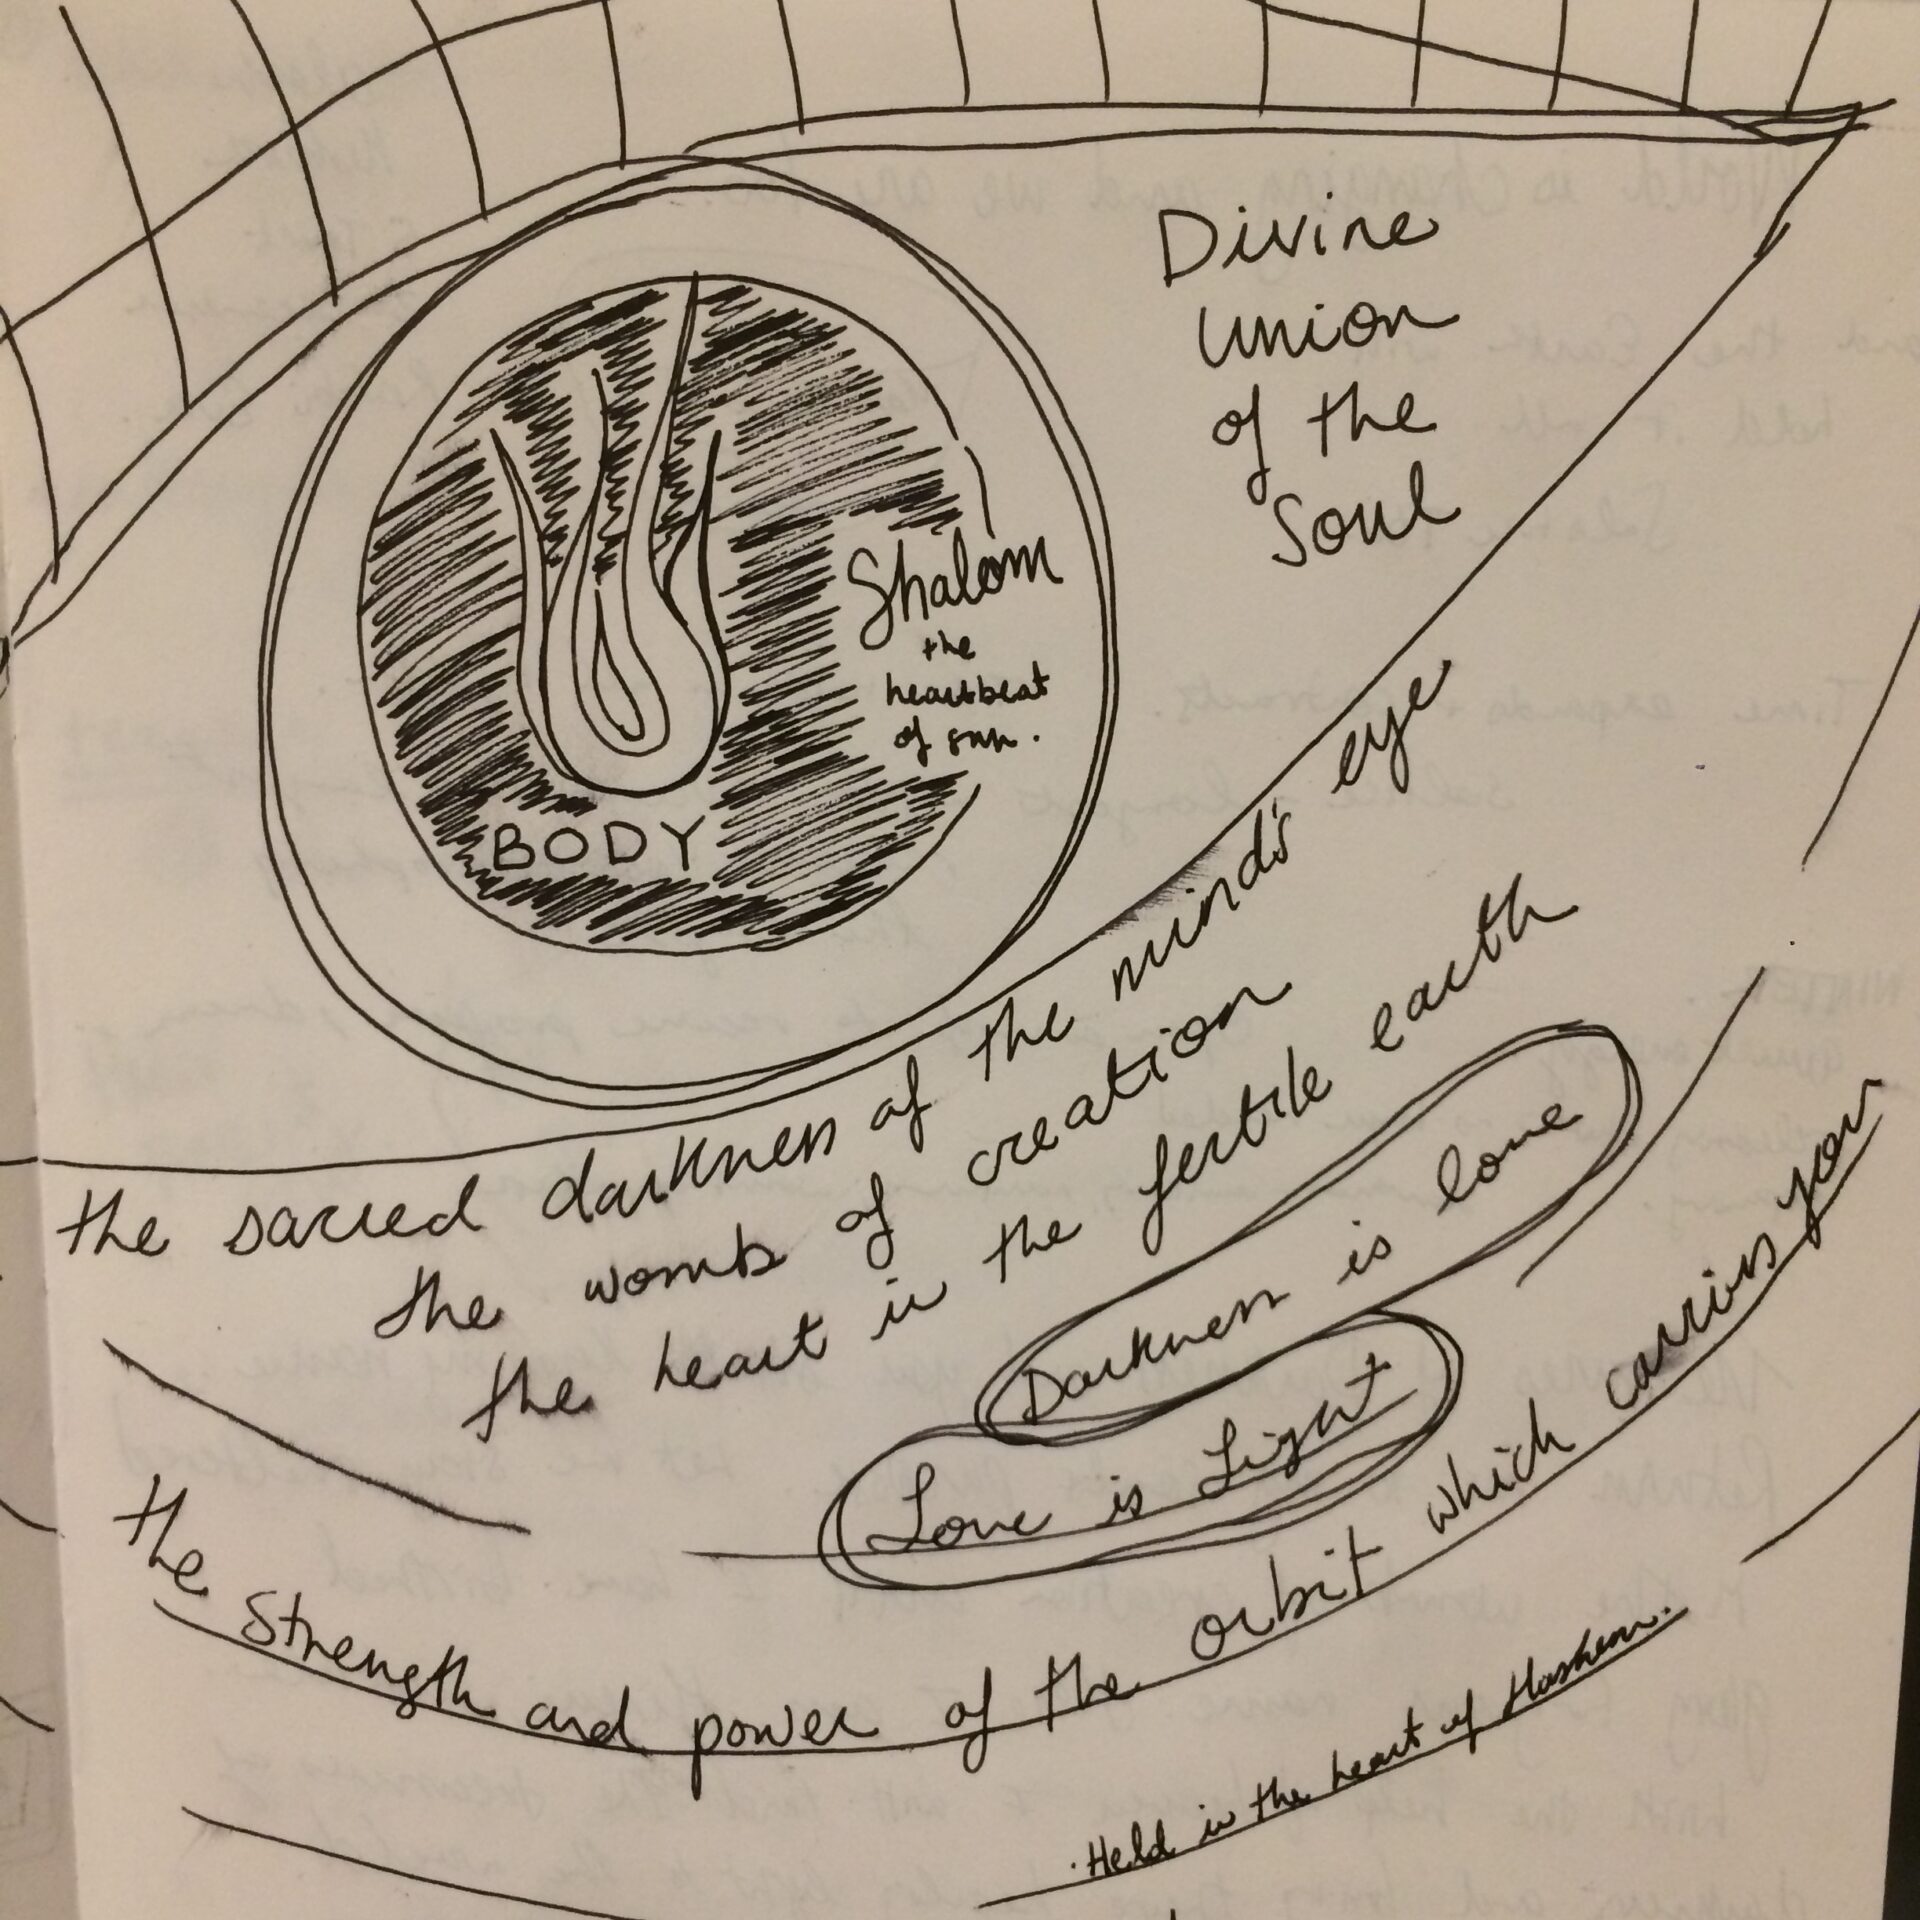 Divine
Union
of the
Soul
Shalom
the
heartbeat
of sun.
BODY
the sacred darkness of the mind's eye
the womb of creation
the heart is the fertile earth
Darkness is love
Love is Light
the strength and power of the orbit which carries you
. Held in the heart of Hashem.